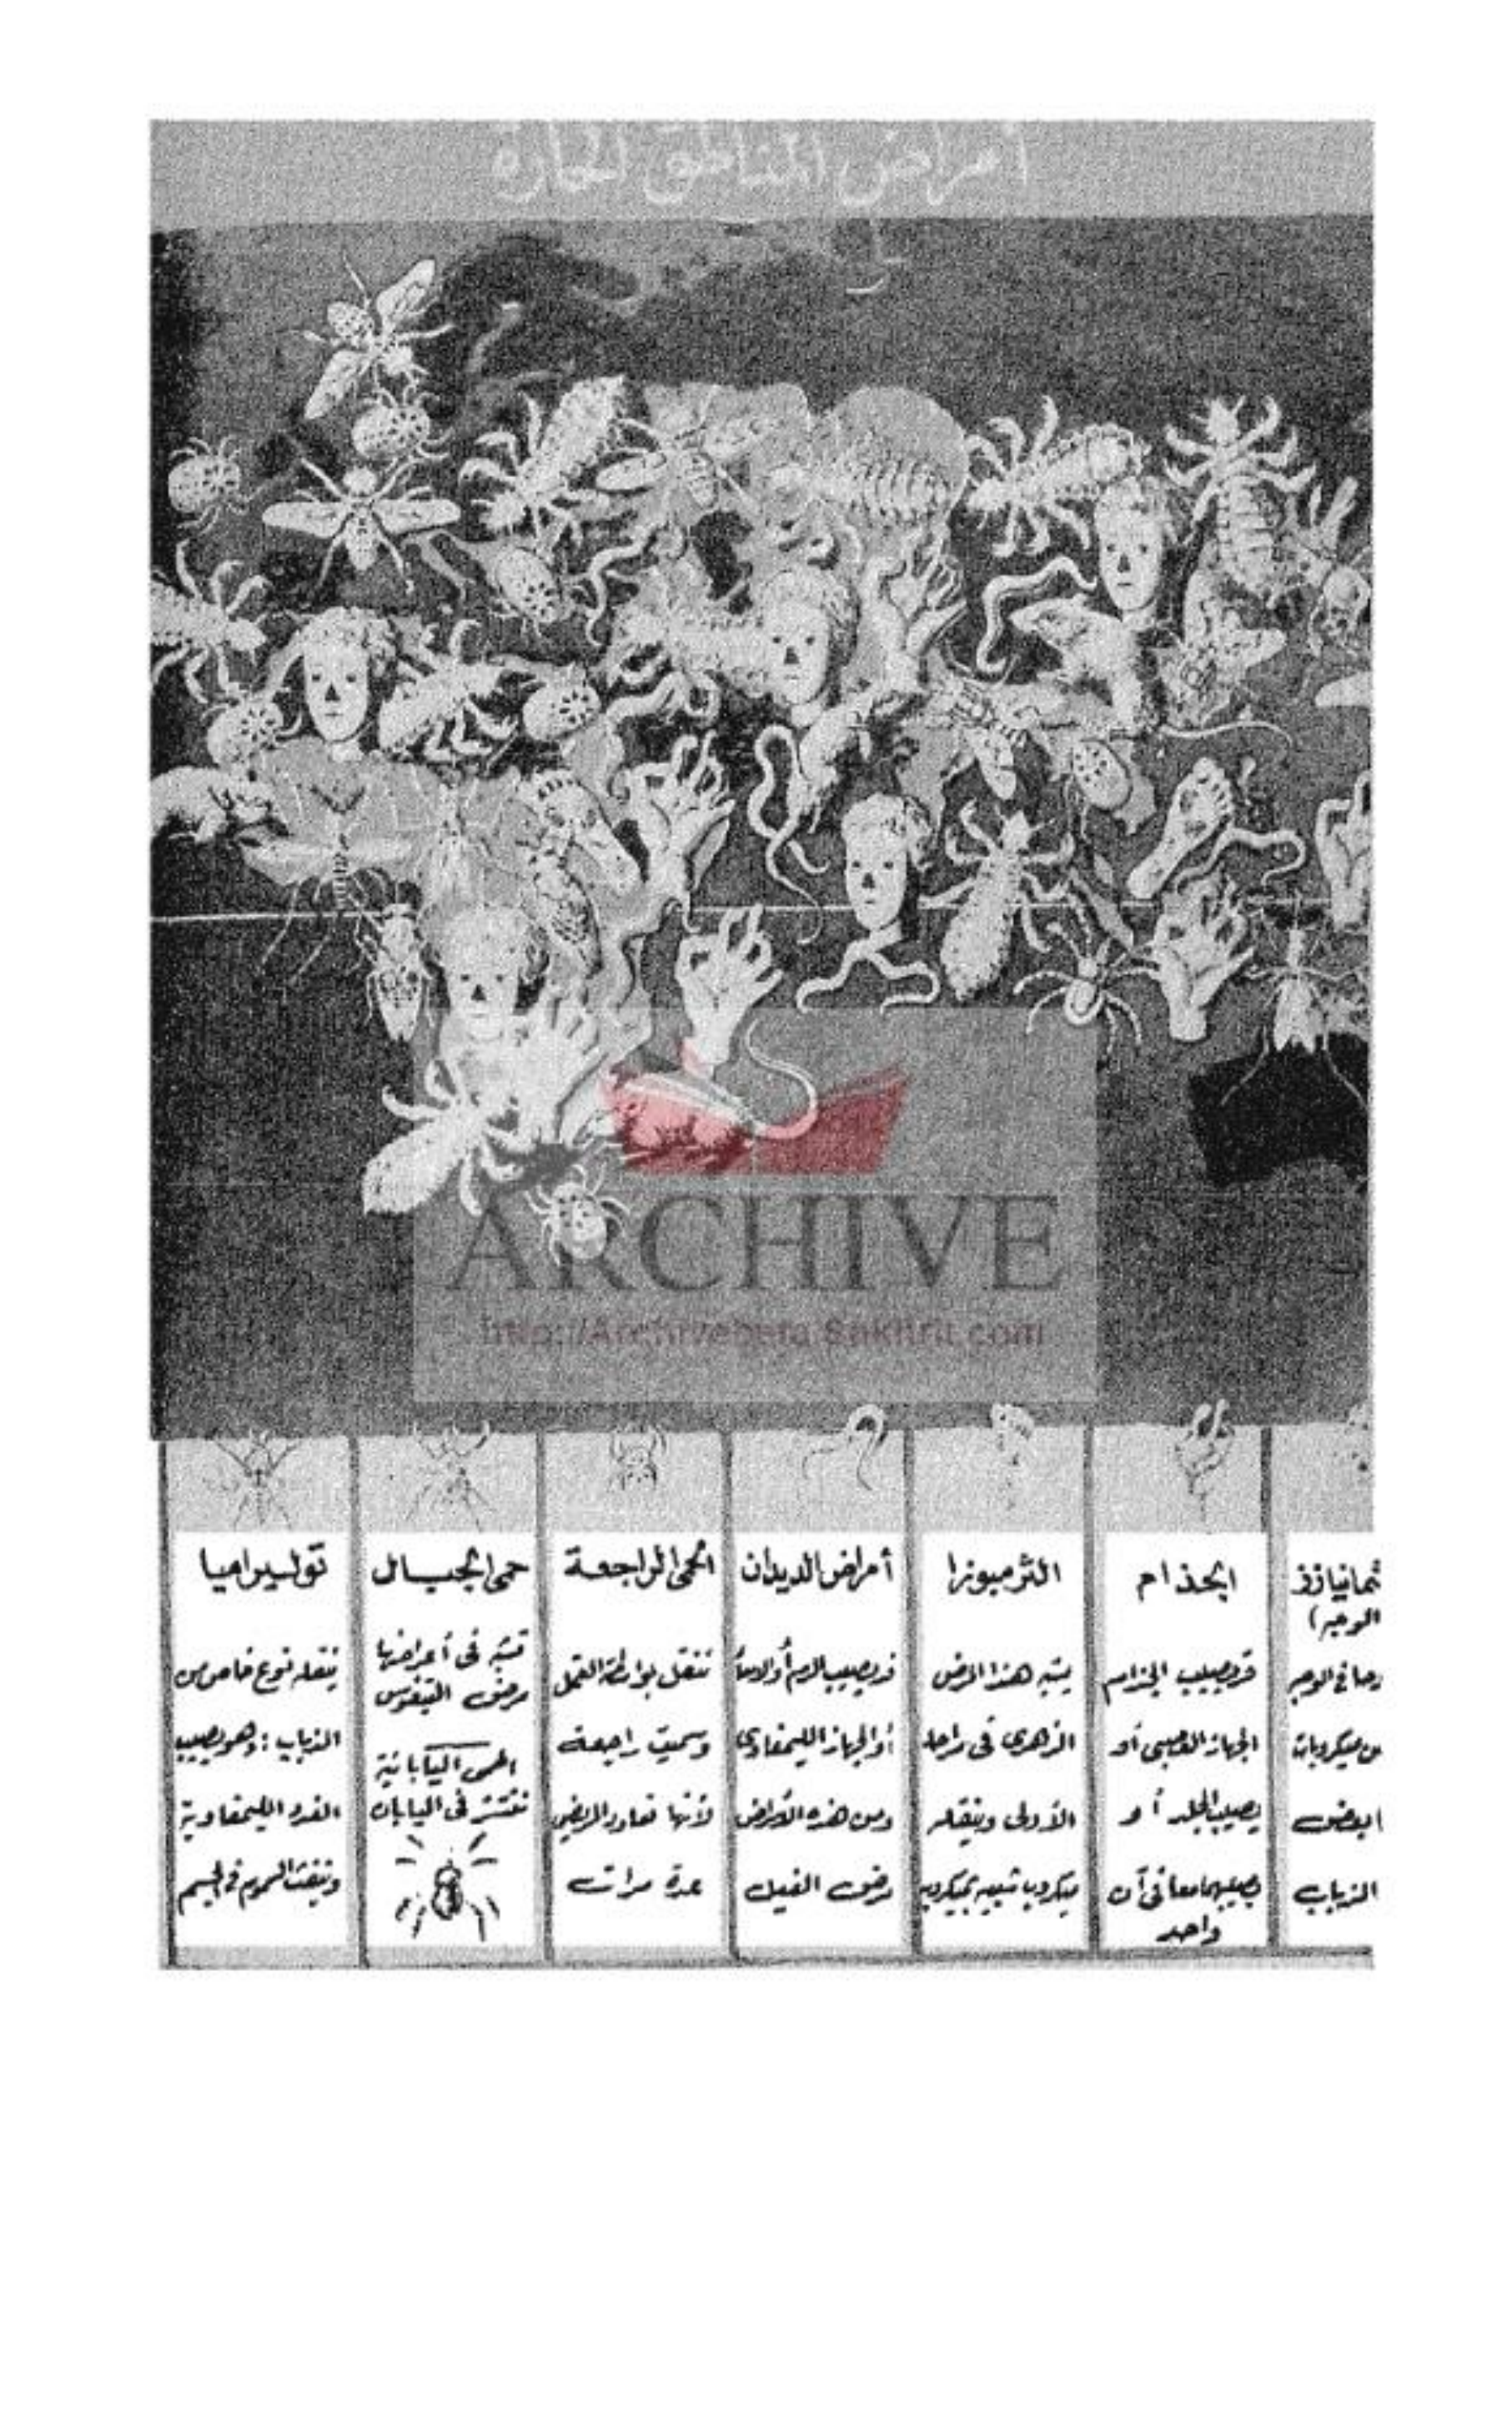 أمراض المناطق الحارة
ARCHIVE
http://Archivebeta.Sakhrit.com
(الوجه
رحا في الوجه
من ميكروبات
البعض
الذباب
الجذام
قد يصيب الجذام
الجهاز العصبي أو
يصيب الجلد أو
يصيبهما معا في آن
واحد
الترمبوزا
يشبه هذا المرض
الزهرى فى مراحله
الأولى وينقله
ميكروب شبيه بميكروب
أمراض الديدان
قد يصيب الدم أو الأمعاء
أو الجهاز الليمفاوى
ومن هذه الأمراض
مرض الفيل
الحمى الراجعة
تنتقل بواسطة القمل
وسميت راجعة
لأنها تعاود المريض
عدة مرات
حمى الجبال
تشبه فى أعراضها
مرض التيفوس
الحمى اليابانية
تنتشر فى اليابان
توليراميا
ينقله نوع خاص من
الذباب : وهو يصيب
الغدد الليمفاوية
وينفث السموم فى الجسم